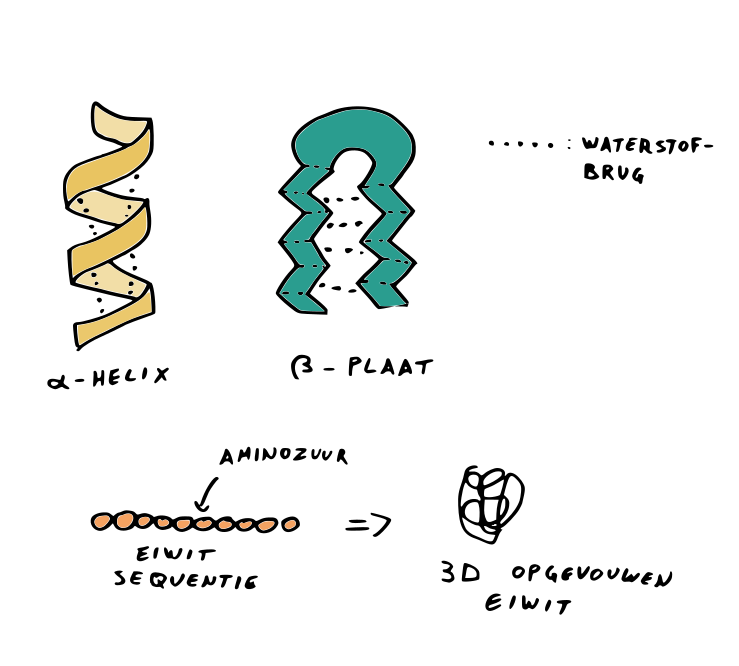 ..... : WATERSTOF-
BRUG
α-HELIX
β - PLAAT
AMINOZUUR
=>
EIWIT
SEQUENTIE
3D OPGEVOUWEN
EIWIT